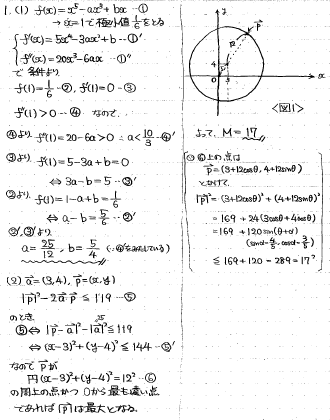 1.(1) f(x)=x⁵-ax³+bx …①
→ x=1で極小値1/6をとる
f'(x)=5x⁴-3ax²+b …①'
f''(x)=20x³-6ax …①''
で条件より
f(1)=1/6 …②, f'(1)=0 …③
f''(1)>0 …④ なので
④より f''(1)=20-6a>0 ∴a<10/3 …④'
③より f'(1)=5-3a+b=0
⇔ 3a-b=5 …③'
②より f(1)=1-a+b=1/6
⇔ a-b=5/6 …②'
②',③'より
a=25/12, b=5/4 (∵④'をみたしている)
(2) a=(3,4), p=(x,y)
|p|²-2a・p ≦ 119 …⑤
のとき
⑤⇔ |p-a|²-|a|² ≦ 119
25
⇔ (x-3)²+(y-4)² ≦ 144 …⑤'
なので pが
円(x-3)²+(y-4)²=12² …⑥
の周上の点かつ Oから最も遠い点
であれば |p|は最大となる。
y
p
12
4
5
3
x
<図1>
よって, M=17
⑥上の点は
p=(3+12cosθ, 4+12sinθ)
とかけて
|p|²=(3+12cosθ)²+(4+12sinθ)²
=169+24(3cosθ+4sinθ)
=169+120sin(θ+α)
(sinα=3/5, cosα=4/5)
≦169+120=289=17²